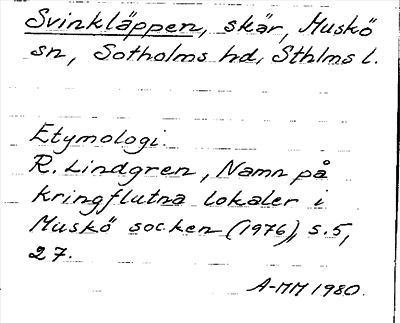 Svinkläppen, skär, Muskö
sn, Sotholms hd, Sthlms l.
Etymologi.
R. Lindgren, Namn på
kringflutna lokaler i
Muskö socken (1976), s. 5,
27.
A-MM 1980.